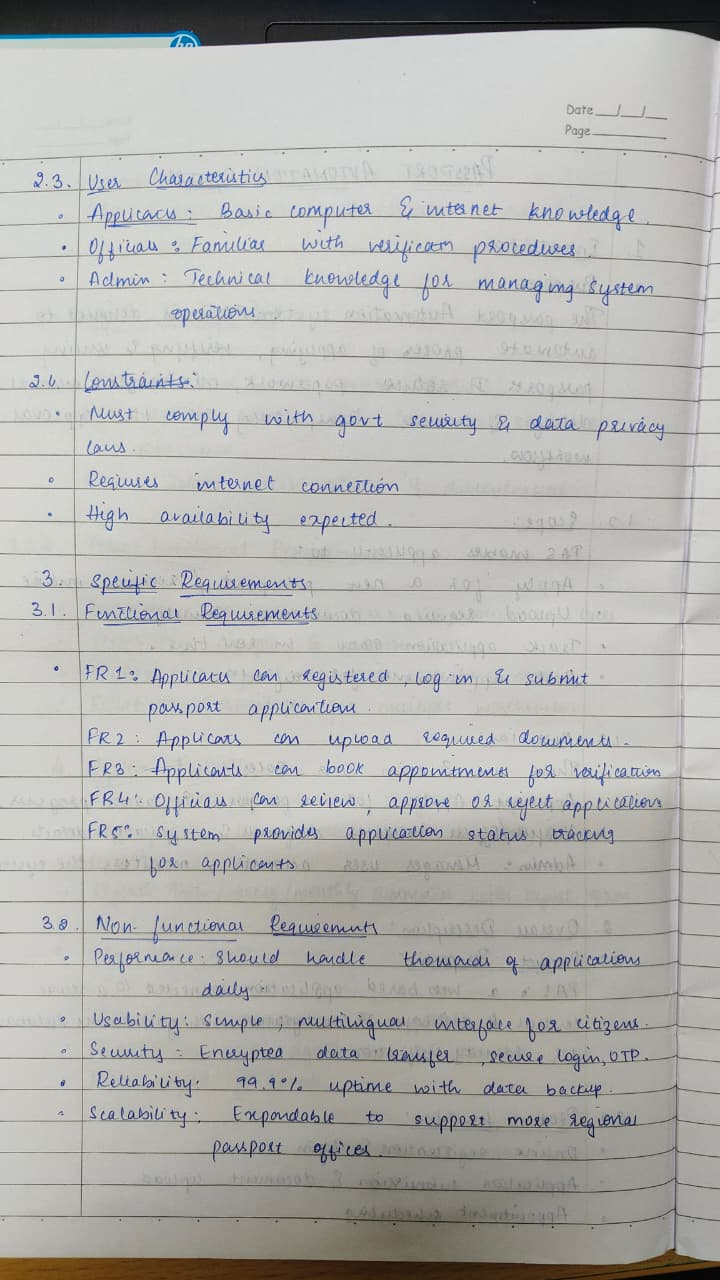 hp
Date __/__/__
Page ______
2.3. User Characteristics
• Applicants : Basic computer & internet knowledge.
• Officials : Familiar with verification procedures
• Admin : Technical knowledge for managing system
operations
2.4. Constraints:
• Must comply with govt security & data privacy
laws.
• Requires internet connection
• High availability expected.
3. Specific Requirements
3.1. Functional Requirements
• FR 1: Applicants can registered, log in & submit
passport application.
FR2 : Applicants can upload required documents.
FR3 : Applicants can book appointments for verification
FR4 : Officials can review, approve or reject applications
FR5 : System provides application status tracking
for applicants
3.2. Non-functional Requirements
• Performance : Should handle thousands of applications
daily.
• Usability : Simple, multilingual interface for citizens.
• Security : Encrypted data transfer, secure login, OTP.
• Reliability : 99.9% uptime with data backup.
• Scalability : Expandable to support more regional
passport offices.